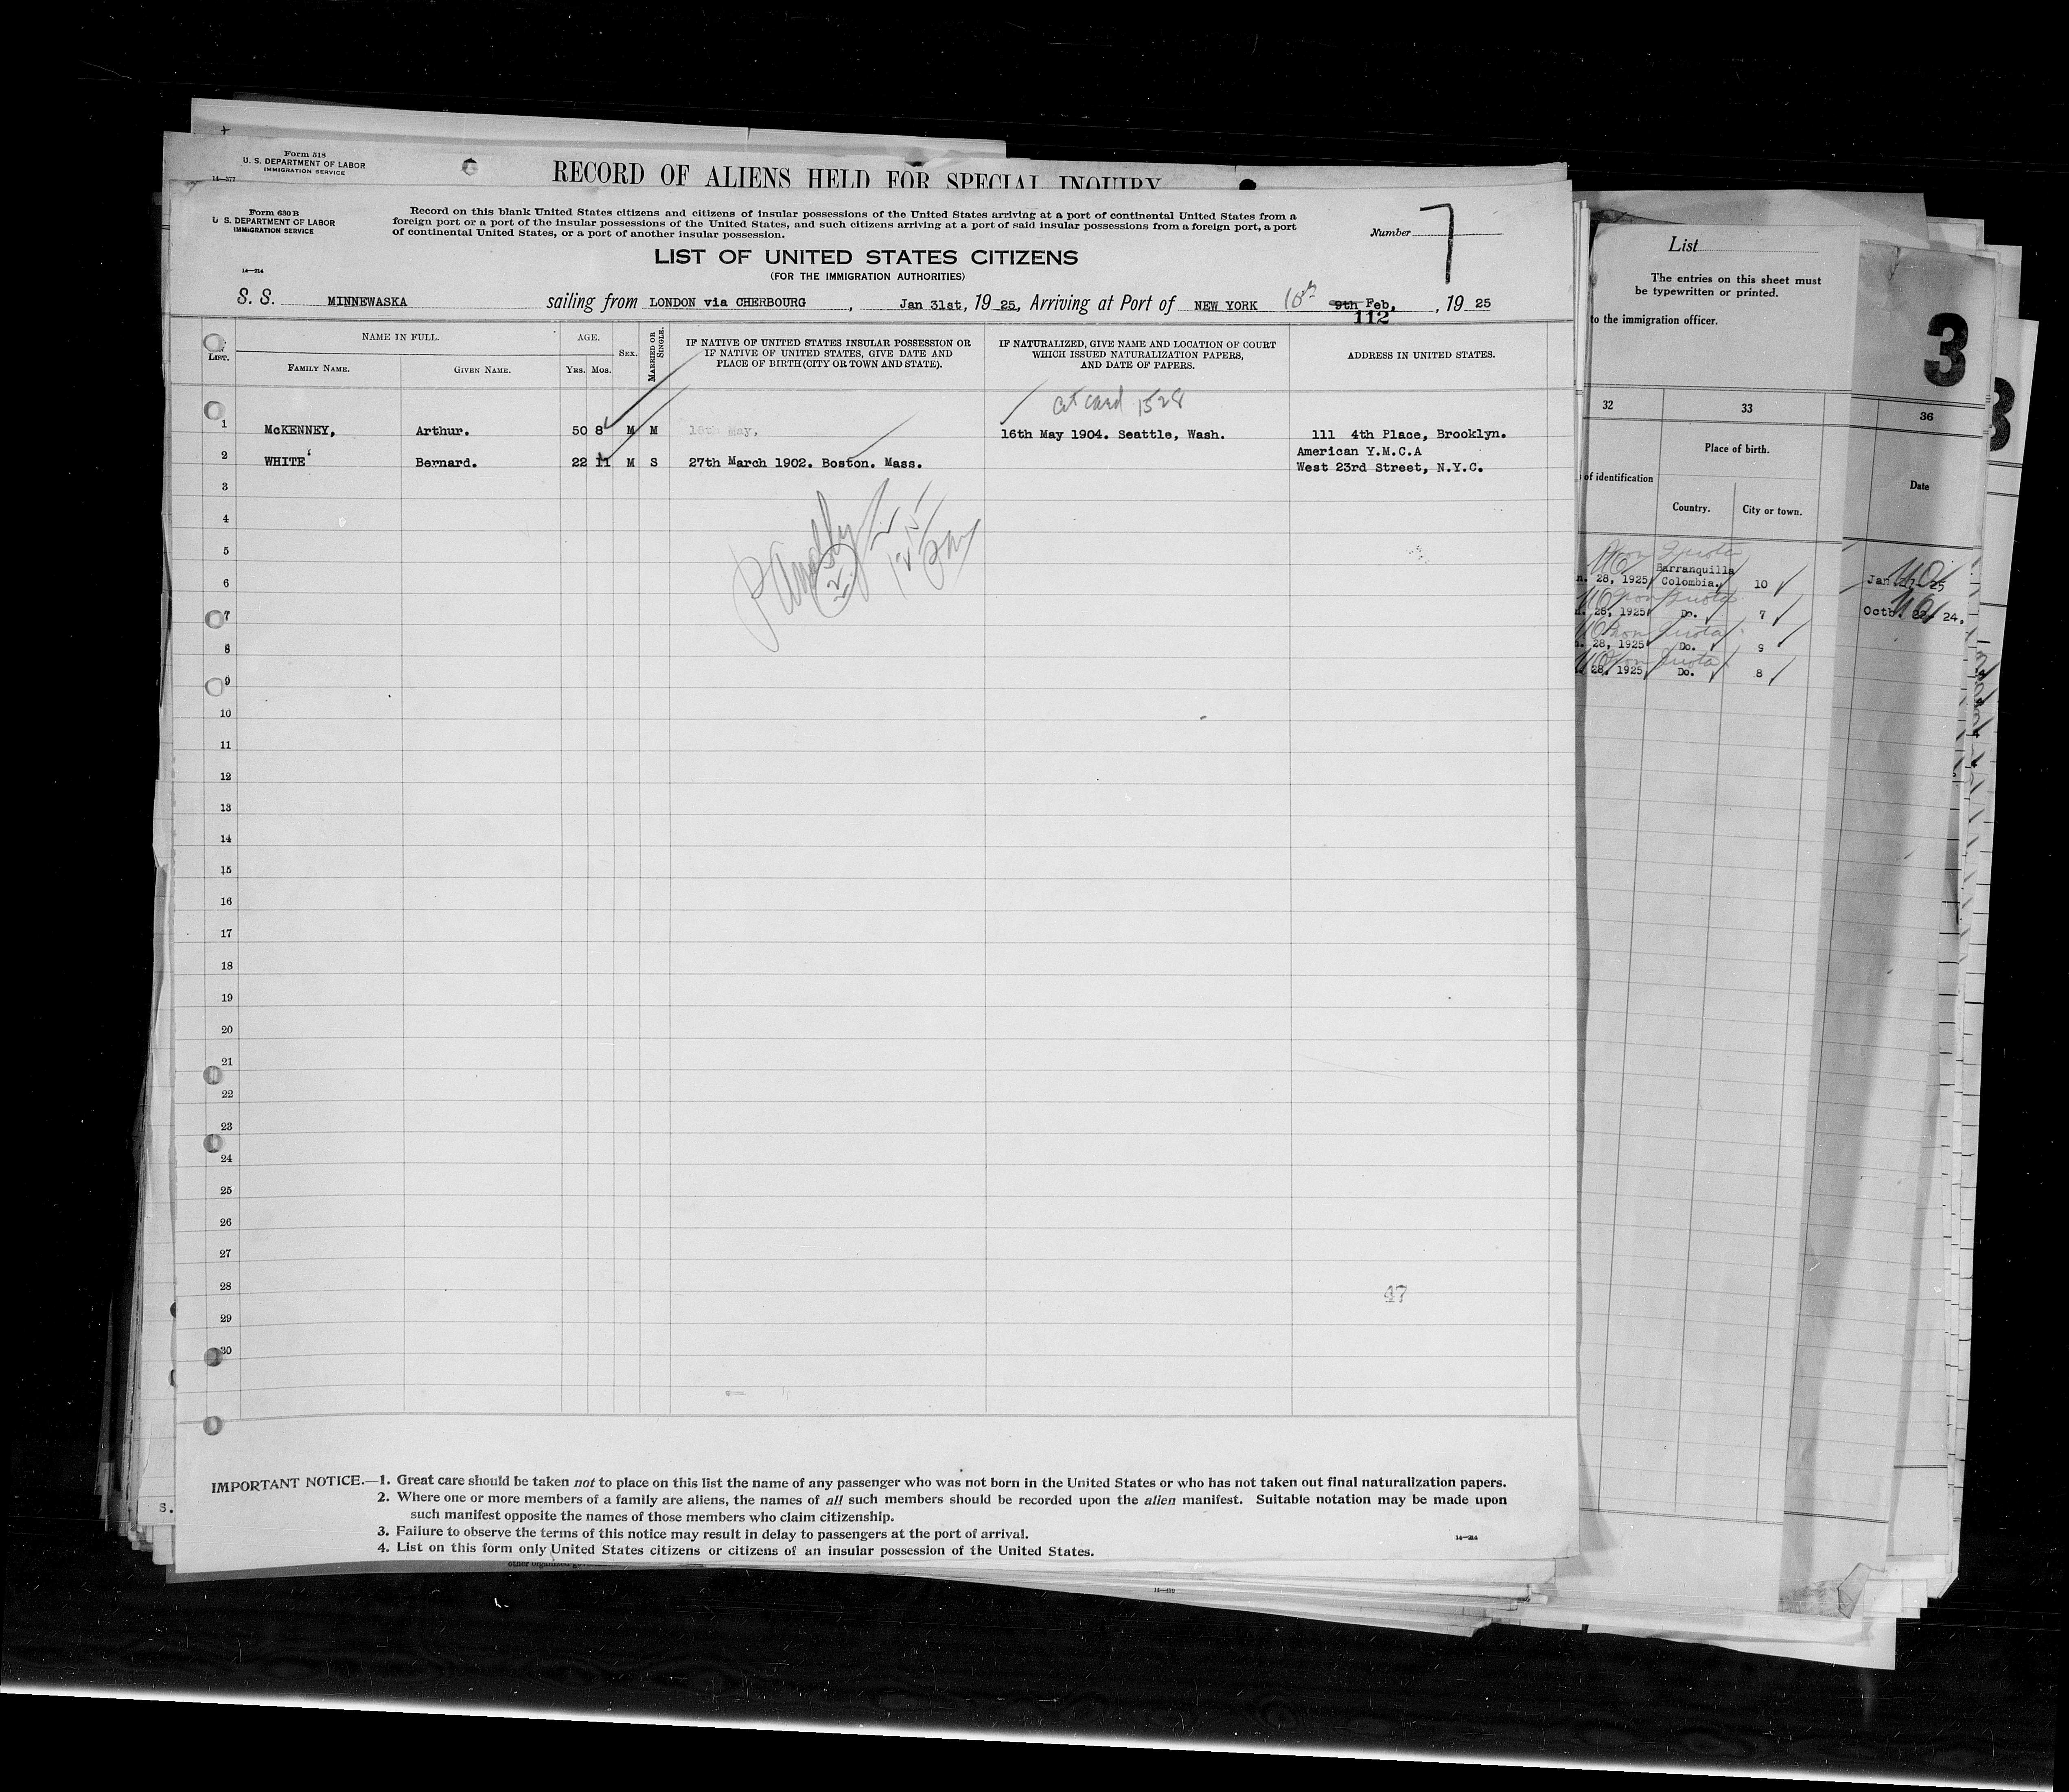 Form 518
U. S. DEPARTMENT OF LABOR
IMMIGRATION SERVICE
14—377
RECORD OF ALIENS HELD FOR SPECIAL INQUIRY
Form 630 B
U. S. DEPARTMENT OF LABOR
IMMIGRATION SERVICE
14—214
Record on this blank United States citizens and citizens of insular possessions of the United States arriving at a port of continental United States from a
foreign port or a port of the insular possessions of the United States, and such citizens arriving at a port of said insular possessions from a foreign port, a port
of continental United States, or a port of another insular possession.
Number 7
LIST OF UNITED STATES CITIZENS
(FOR THE IMMIGRATION AUTHORITIES)
S. S. MINNEWASKA sailing from LONDON via CHERBOURG, Jan 31st, 19 25, Arriving at Port of NEW YORK 10th 9th Feb, , 19 25
112
LIST.
NAME IN FULL.
FAMILY NAME.
GIVEN NAME.
AGE.
YRS. MOS.
SEX.
MARRIED OR SINGLE.
IF NATIVE OF UNITED STATES INSULAR POSSESSION OR
IF NATIVE OF UNITED STATES, GIVE DATE AND
PLACE OF BIRTH (CITY OR TOWN AND STATE).
IF NATURALIZED, GIVE NAME AND LOCATION OF COURT
WHICH ISSUED NATURALIZATION PAPERS,
AND DATE OF PAPERS.
ADDRESS IN UNITED STATES.
card 1528
1 McKENNEY, Arthur. 50 8 M M 16th May, 16th May 1904. Seattle, Wash. 111 4th Place, Brooklyn.
2 WHITE Bernard. 22 11 M S 27th March 1902. Boston. Mass. American Y.M.C.A
West 23rd Street, N.Y.C.
3
4
5
6
7
8
9
10
11
12
13
14
15
16
17
18
19
20
21
22
23
24
25
26
27
28
29
30
47
IMPORTANT NOTICE.—1. Great care should be taken not to place on this list the name of any passenger who was not born in the United States or who has not taken out final naturalization papers.
2. Where one or more members of a family are aliens, the names of all such members should be recorded upon the alien manifest. Suitable notation may be made upon
such manifest opposite the names of those members who claim citizenship.
3. Failure to observe the terms of this notice may result in delay to passengers at the port of arrival.
4. List on this form only United States citizens or citizens of an insular possession of the United States.
14—214
List
The entries on this sheet must
be typewritten or printed.
to the immigration officer.
3
32
33
36
Place of birth.
of identification
Country.
City or town.
Date
Non Quota
28, 1925 Barranquilla Colombia. 10
Non Quota
28, 1925 Do. 7
Non Quota
28, 1925 Do. 9
Non Quota
28, 1925 Do. 8